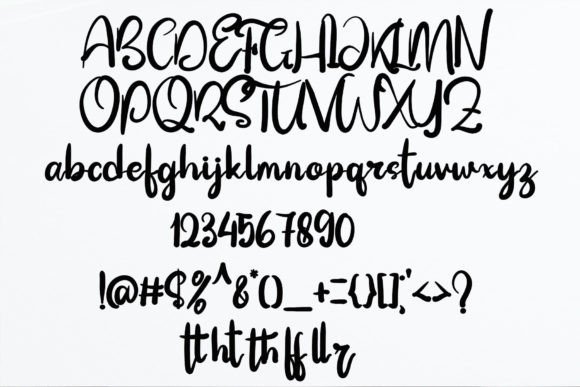 ABCDEFGHIJKLMN
OPQRSTUVWXYZ
abcdefghijklmnopqrstuvwxyz
1234567890
!@#$%^&*()_+={}[];'<>?
tt ht th ff ll r